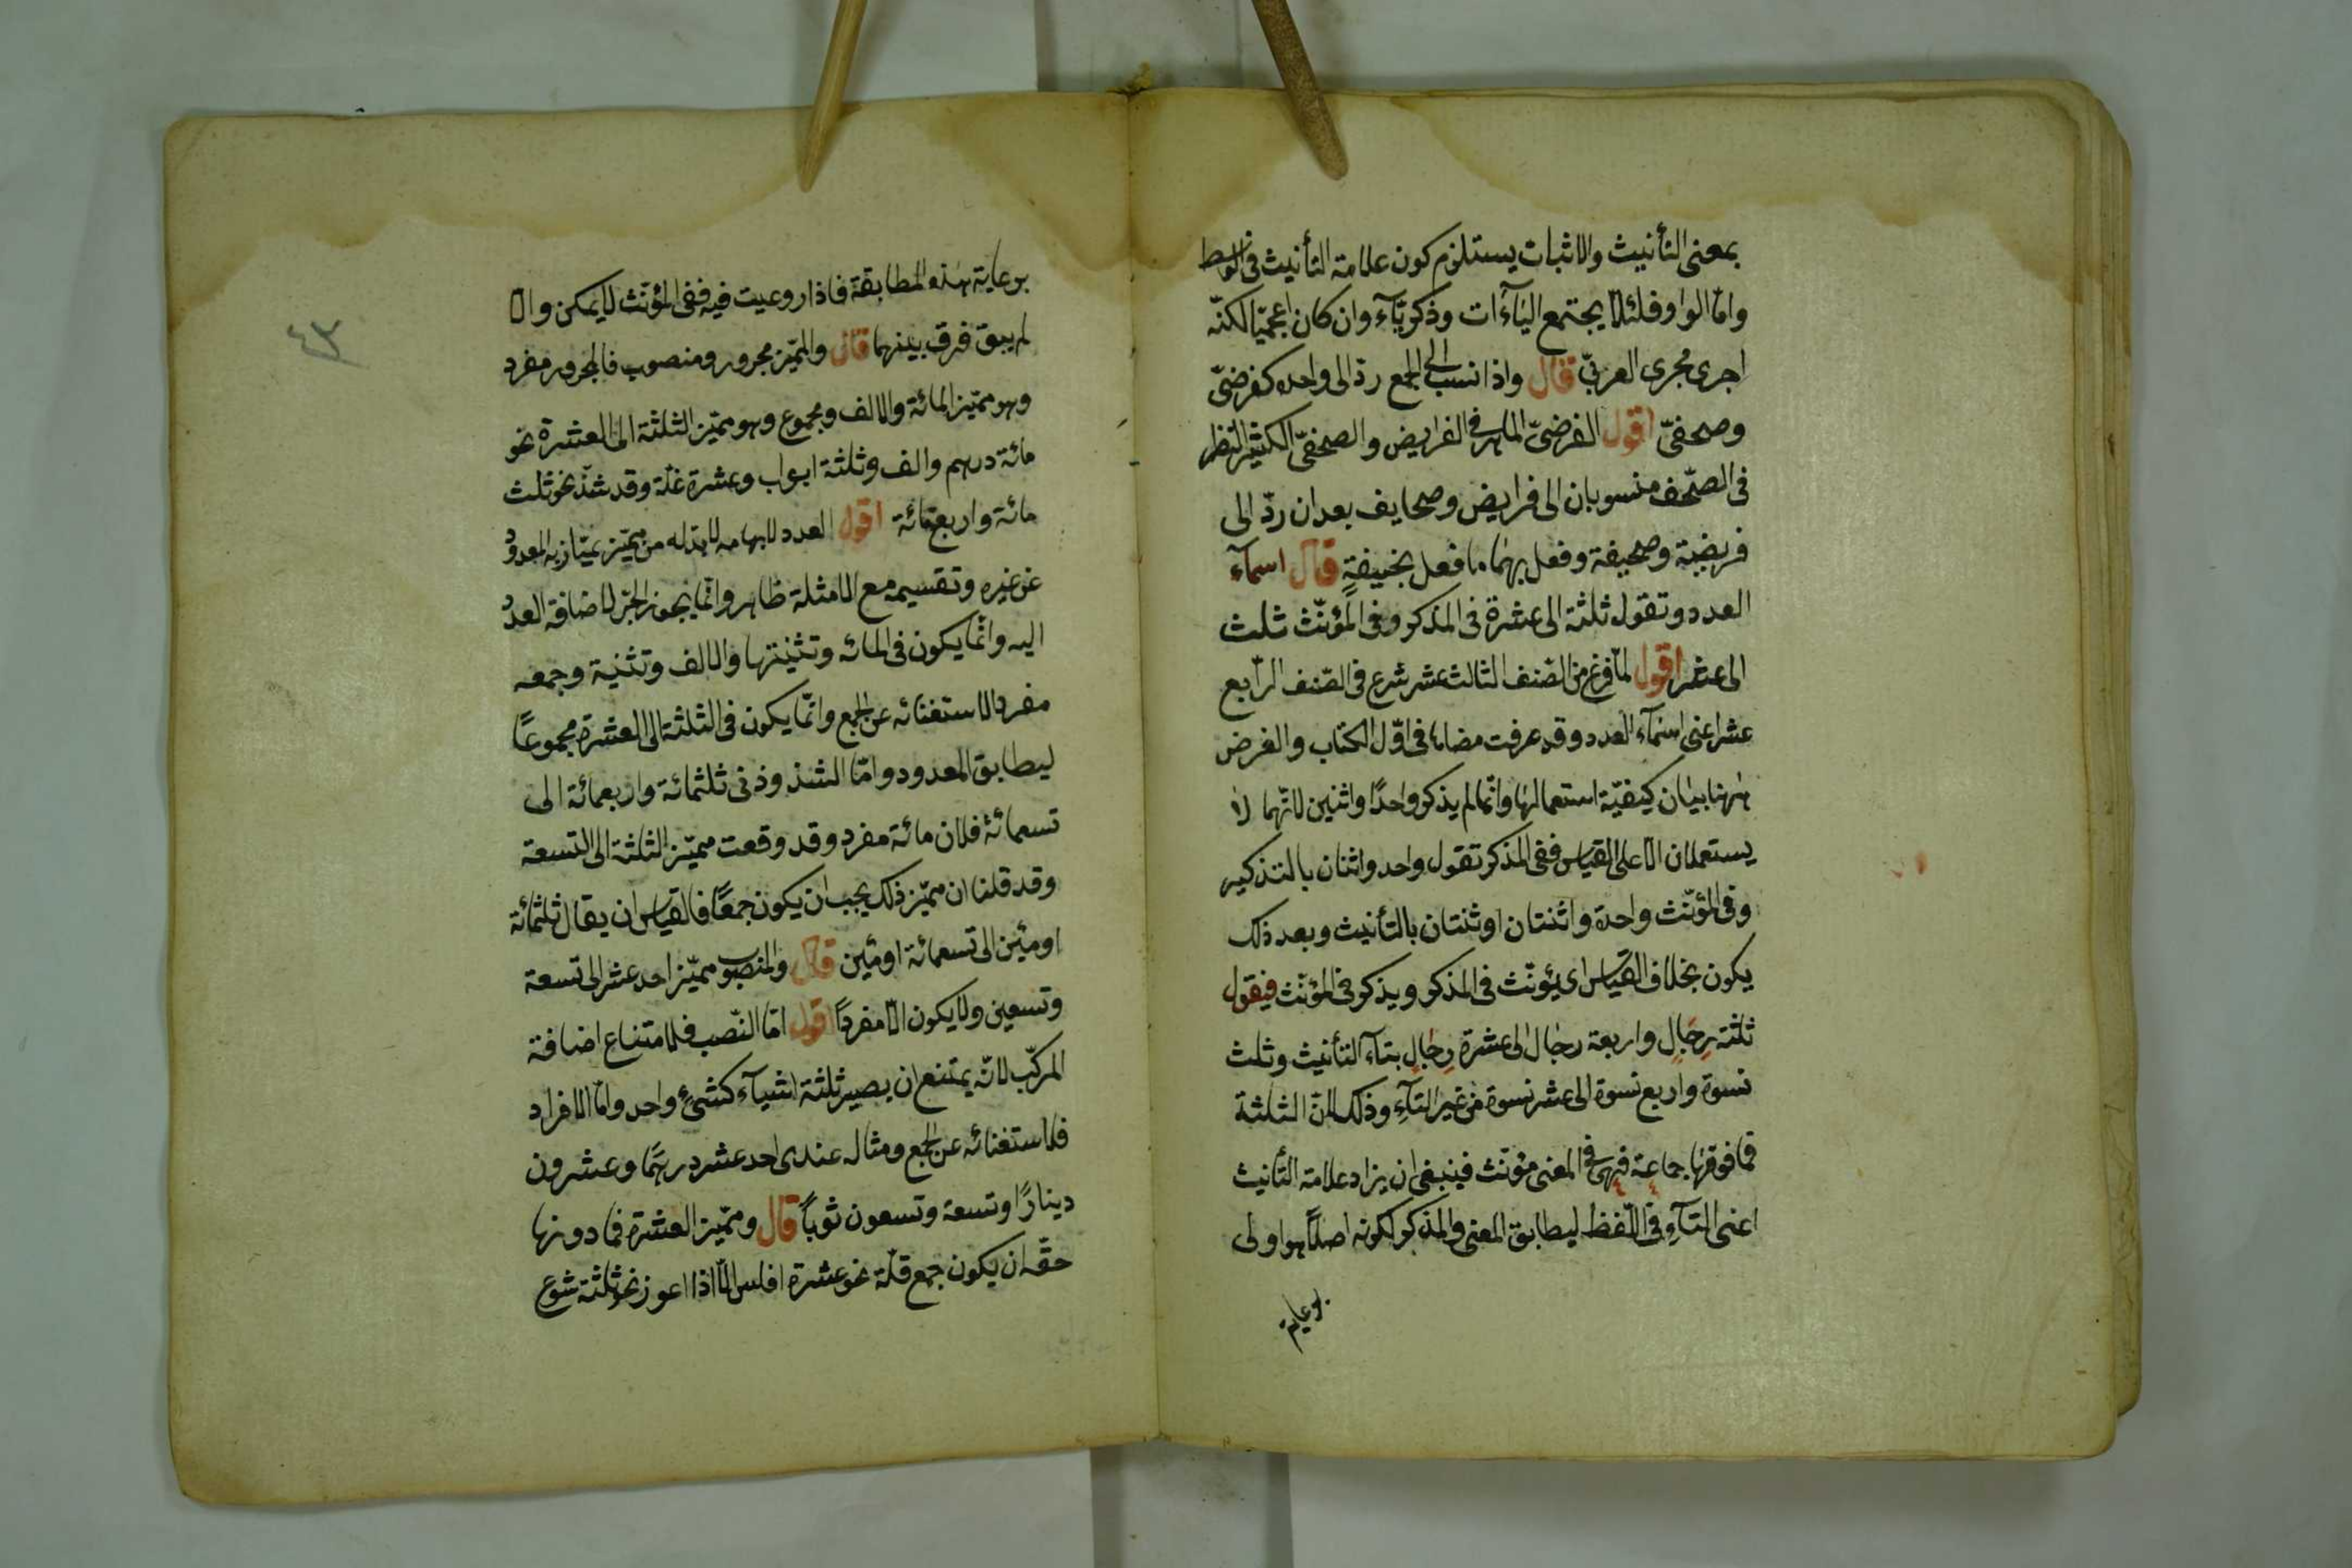 بمعنى التأنيث والاثبات يستلزم كون علامة التأنيث فى الوسط
وامّا الواو فلئلّا يجتمع الياءات وذكريّاء وان كان اعجميّا لكنّه
اجرى مجرى العربىّ قال واذا نسب الى الجمع ردّ الى واحده كفرضىّ
وصحفىّ اقول الفرضىّ الماهر فى الفرايض والصحفىّ الكثير النظر
فى الصّحف منسوبان الى فرايض وصحايف بعد ان ردّ الى
فريضة وصحيفة وفعل بهما ما فعل بحنيفةٍ قال اسماء
العدد وتقول ثلثة الى عشرة فى المذكر وفى المؤنّث ثلث
الى عشر اقول لمّا فرغ من الصّنف الثالث عشر شرع فى الصّنف الرّابع
عشر اعنى اسماء العدد وقد عرفت معناها فى اوّل الكتاب والغرض
ههنا بيان كيفيّة استعمالها وانّما لم يذكر واحدًا واثنين لانّهما لا
يستعملان الّا على القياس ففى المذكر تقول واحد واثنان بالتذكير
وفى المؤنّث واحدة واثنتان او ثنتان بالتأنيث وبعد ذلك
يكون بخلاف القياس اى يؤنّث فى المذكر ويذكر فى المؤنّث فيقول
ثلثة رجالٍ واربعة رجال الى عشرة رجالٍ بتاء التأنيث وثلث
نسوة واربع نسوة الى عشر نسوة من غير التاءِ وذلك لانّ الثلثة
فما فوقها جماعة فهى فى المعنى مؤنّث فينبغى ان يزاد علامة التأنيث
اعنى التاءِ فى اللّفظ ليطابق المعنى والمذكر لكونه اصلًا هو اولى
برعاية
٤٣
برعاية هذه المطابقة فاذا روعيت فيه ففى المؤنّث لا يمكن والّا
لم يبق فرق بينهما قال والمميّز مجرور ومنصوب فالمجرور مفرد
وهو مميّز المائة والالف ومجموع وهو مميّز الثلثة الى العشرة نحو
مائة درهم والف وثلثة ابواب وعشرة غلة وقد شذّ نحو ثلث
مائة واربع مائة اقول العدد لابهامه لا بدّ له من مميّز يمتاز به المعدود
عن غيره وتقسيمه مع الامثلة ظاهر وانّما يجوز الجرّ لاضافة العدد
اليه وانّما يكون فى المائة وتثنيتها والالف وتثنية وجمعه
مفردا لاستغنائه عن الجمع وانّما يكون فى الثلثة الى العشرة مجموعًا
ليطابق المعدود وامّا الشذوذ فى ثلثمائة واربعمائة الى
تسعمائة فلان مائة مفرد وقد وقعت مميّز الثلثة الى التسعة
وقد قلنا ان مميّز ذلك يجب ان يكون جمعًا فالقياس ان يقال ثلثمائة
او مئين الى تسعمائة او مئين قال والمنصوب مميّز احد عشر الى تسعة
وتسعين ولا يكون الّا مفرداً اقول امّا النّصب فلامتناع اضافة
المركّب لانّه يمتنع ان يصير ثلثة اشياء كشىءٍ واحد وامّا الافراد
فلاستغنائه عن الجمع ومثاله عندى احد عشر درهمًا وعشرون
دينارًا وتسعة وتسعون ثوباً قال ومميّز العشرة فما دونها
حقّه ان يكون جمع قلّة نحو عشرة افلس الّا اذا اعوز نحو ثلثة شسوع